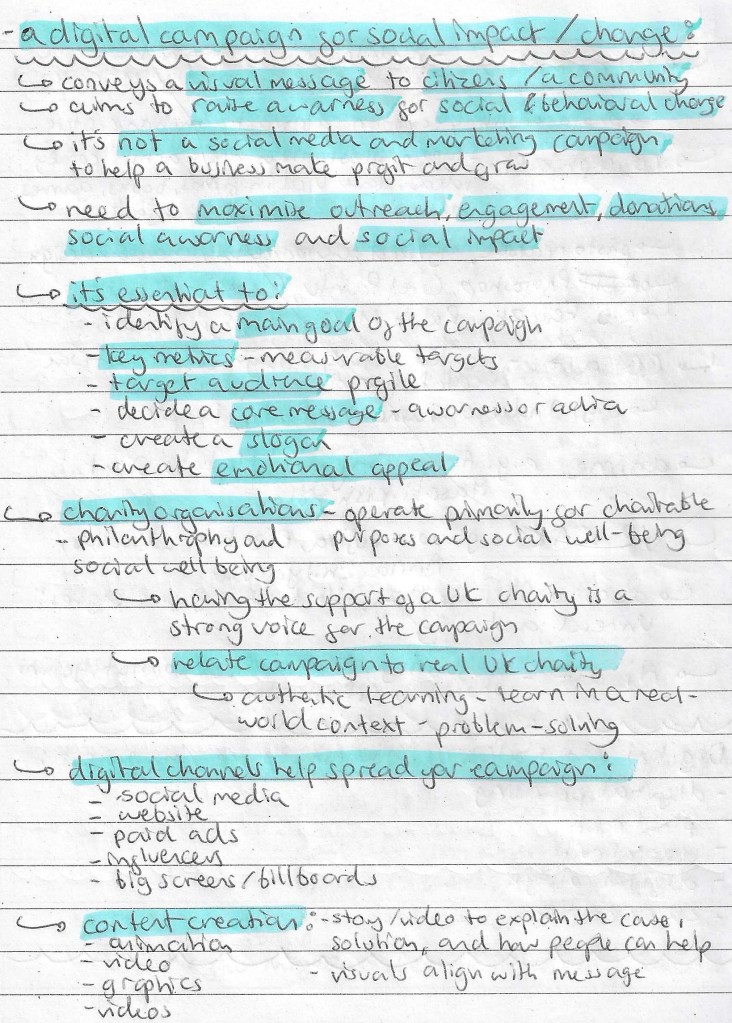 - a digital campaign for social impact / change:
↳ conveys a visual message to citizens / a community
↳ aims to raise awarness for social & behavioural change
↳ it's not a social media and marketing campaign
to help a business make profit and grow
↳ need to maximise outreach, engagement, donations,
social awarness and social impact
↳ it's essential to:
- identify a main goal of the campaign
- key metrics - measurable targets
- target audience profile
- decide a core message - awarness or action
- create a slogan
- create emotional appeal
↳ charity organisations - operate primarily for charitable
- philanthropy and purposes and social well-being
social well being
↳ having the support of a UK charity is a
strong voice for the campaign
↳ relate campaign to real UK charity
↳ authentic learning - learn in a real-
world context - problem-solving
↳ digital channels help spread your campaign:
- social media
- website
- paid ads
- influencers
- big screens / billboards
↳ content creation: - story / video to explain the cause,
- animation solution, and how people can help
- video - visuals align with message
- graphics
- videos